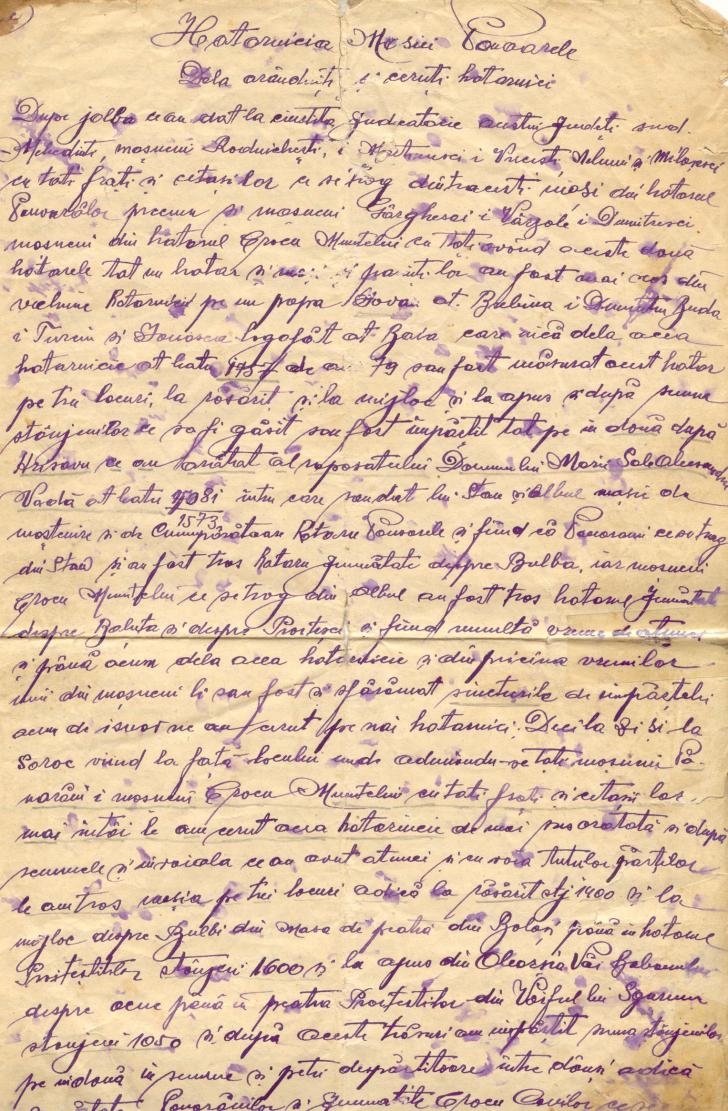 Hotarnicia Mosiei Ponoarele
Dela orânduiți și ceruți hotarnici
Dupe jalba ce au dat la cinstita judecatorie acestui județ sud.
Mehedinți, mosneni i i Vucesti și Miloșesci
cu toți frați și cetașilor ce se trag dintraceste moși din hotarul
Ponorălor precum și mosneni Gârghesei i Vârzole i Dumitresci,
mosneni din hotarul Crocu Muntelui cu toți avînd aceste două
hotarele tot un hotar și moși și părinților au fost mai ales din
vechime hotarnici pe un popa Iova ot Balina i Dumitru Buda
i Turcin și Logofăt ot Baia care încă dela acea
hotarnicie ot leatu 1757 de ani 79 sau fost măsurat acest hotar
pe trei locuri, la răsărit și la mijloc și la apus și după suma
stânjenilor ce sa fi găsit sau fost împărțit tot pe in două după
Hrisovu ce au arătat al raposatului Domnului Marii Sale Alexandru
Vodă ot leatu 7081 intru care sau dat lui Stan și Albul mosii de
1573
mostenire și de Cumpărătoare Hotaru Ponoarele și fiind că Ponorani ce se trag
din Stan și au fost tras hotaru jumătate despre Bulba, iar mosneni
Crocu Muntelui ce se trag din Albul au fost tras hotarul jumătate
despre Baluta și despre Proitesci și fiind multă vreme de atunci
și până acum dela acea hotarnicie și din pricina vremilor
unii din moșneni li sau fost și sfărâmat sineturile de împărțeli
acum de isnov ne au cerut pe noi hotarnici. Deci la Zi și la
Soroc viind la fața locului unde adunându-se toți mosnenii Po-
norăni i mosneni Crocu Muntelui cu toți frați și cetașii lor
mai întâi le am cerut acea hotarnicie de mai sus arătată și după
semnele și învoiala ce au avut atunci și cu voia tutulor părților
le am tras moșia pe trei locuri adică la răsărit stj 1400 și la
mijloc despre Bulbi din Masa de piatră din Bolași până in hotarul
Proitestilor stânjeni 1600 și la apus din Oleorșia Văi
despre până in piatra Proitestilor din Vârful lui Sgarum
stânjeni 1050 și după aceste trăsuri am împărțit suma stânjenilor
pe in două in semne și petri despărțitoare între dânși adică
Ponorănilor și jumătate Crocu